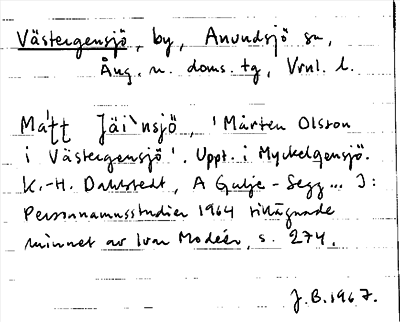 Västergensjö, by, Anundsjö sn,
Ång. n. doms. tg, Vrnl. l.
Má̄tt Jäi`nsjö, 'Mårten Olsson
i Västergensjö'. Uppt. i Myckelgensjö.
K.-H. Dahlstedt, A Gulje-Segg... I:
Personnamnsstudier 1964 tillägnade
minnet av Ivar Modéer, s. 274.
J.B. 1967.